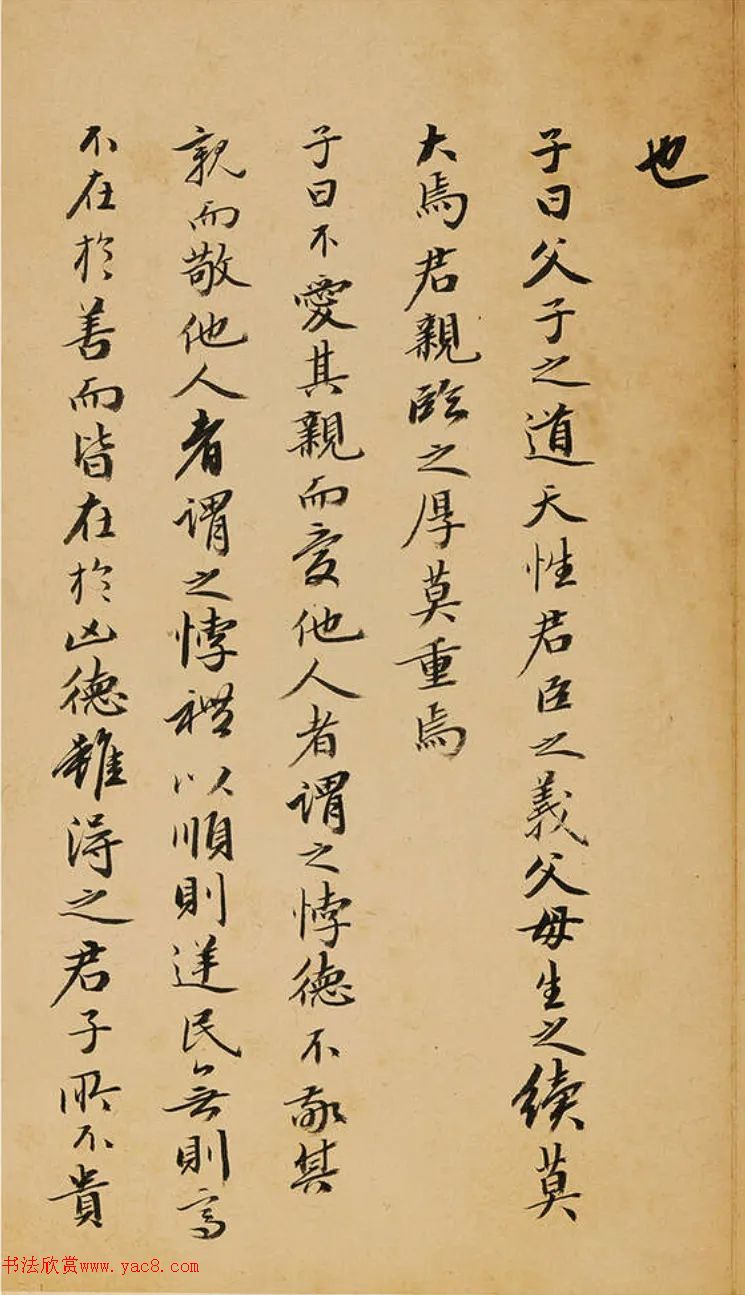 也
子曰父子之道天性君臣之義父母生之續莫
大焉君親臨之厚莫重焉
子曰不愛其親而愛他人者謂之悖德不敬其
親而敬他人者謂之悖禮以順則逆民無則焉
不在於善而皆在於凶德雖得之君子所不貴
书法欣赏www.yac8.com